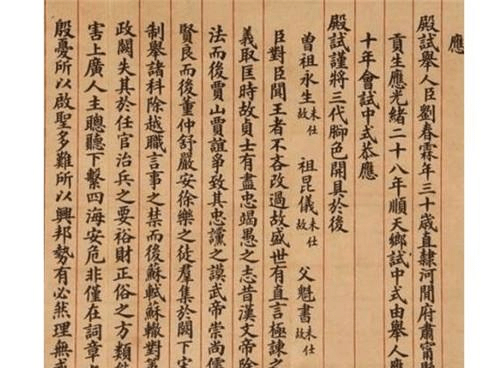 應
殿試舉人臣劉春霖年三十歲直隸河間府肅寧縣
貢生應光緒二十八年順天鄉試中式由舉人應
十年會試中式恭應
殿試謹將三代腳色開具於後
曾祖永生未仕故 祖昆儀未仕故 父魁書未仕故
臣對臣聞王者不吝改過故盛世有直言極諫之
義取匡時故貞士有盡忠竭愚之志昔漢文帝除
法而後賈山賈誼爭致其忠讜之謨武帝崇尚儒
賢良而後董仲舒嚴安徐樂之徒羣集於闕下
制舉諸科除越職言事之禁而後蘇軾蘇轍對
政闕失其於任官治兵之要裕財正俗之方類
害上廣人主聰聽下繫四海安危非僅在詞章
殷憂所以啟聖多難所以興邦勢有必然理無